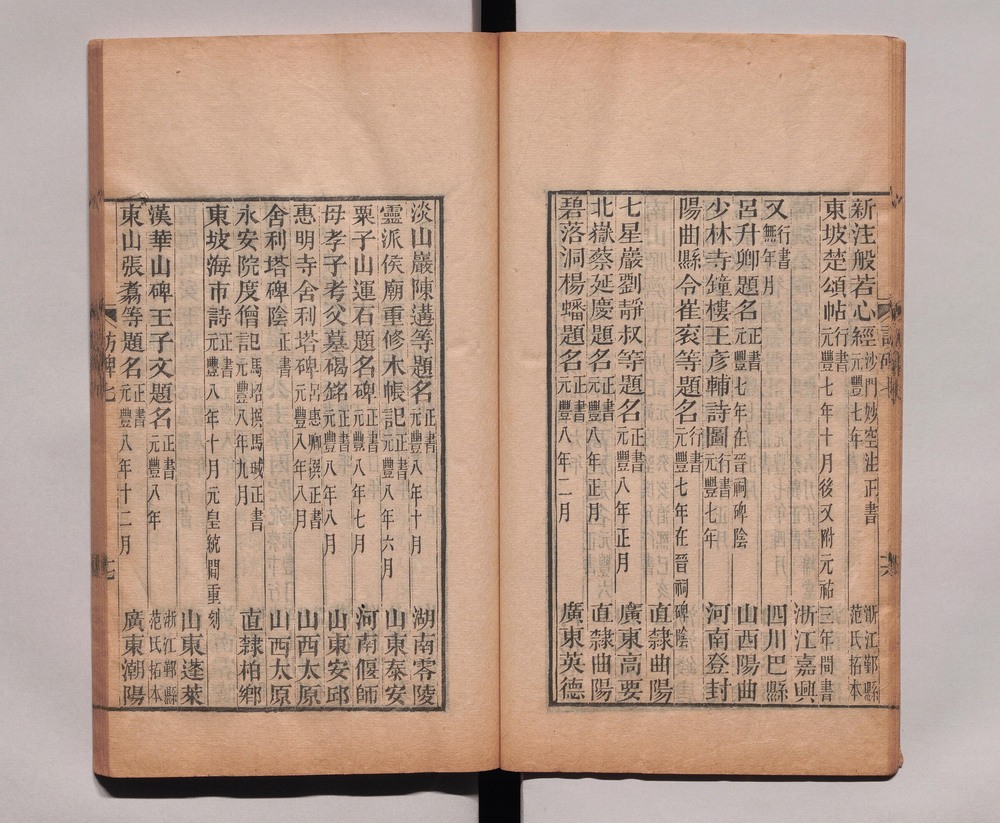 新注般若心經 沙門妙空注正書 元豐七年 浙江鄞縣 范氏拓本
東坡楚頌帖 行書 元豐七年十月後又附元祐三年間書
浙江嘉興
又 行書 無年月 四川巴縣
呂升卿題名 正書 元豐七年在晉祠碑陰 山西陽曲
少林寺鐘樓王彥輔詩圖 行書 元豐七年 河南登封
陽曲縣令崔袞等題名 行書 元豐七年在晉祠碑陰
直隸曲陽
七星巖劉靜叔等題名 正書 元豐八年正月 廣東高要
北嶽蔡延慶題名 正書 元豐八年正月 直隸曲陽
碧落洞楊蟠題名 正書 元豐八年二月 廣東英德
淡山巖陳遘等題名 正書 元豐八年十月 湖南零陵
靈派侯廟重修木帳記 正書 元豐八年六月 山東泰安
粟子山運石題名碑 正書 元豐八年七月 河南偃師
母孝子考父墓碣銘 正書 元豐八年八月 山東安邱
惠明寺舍利塔碑 呂惠卿撰正書 元豐八年八月 山西太原
舍利塔碑陰 正書 山西太原
永安院度僧記 馬瑊正書 元豐八年九月 直隸柏鄉
東坡海市詩 正書 元豐八年十月元皇統間重刻
山東蓬萊
漢華山碑王子文題名 正書 元豐八年 浙江鄞縣 范氏拓本
東山張翥等題名 正書 元豐八年十二月 廣東潮陽
訪碑七